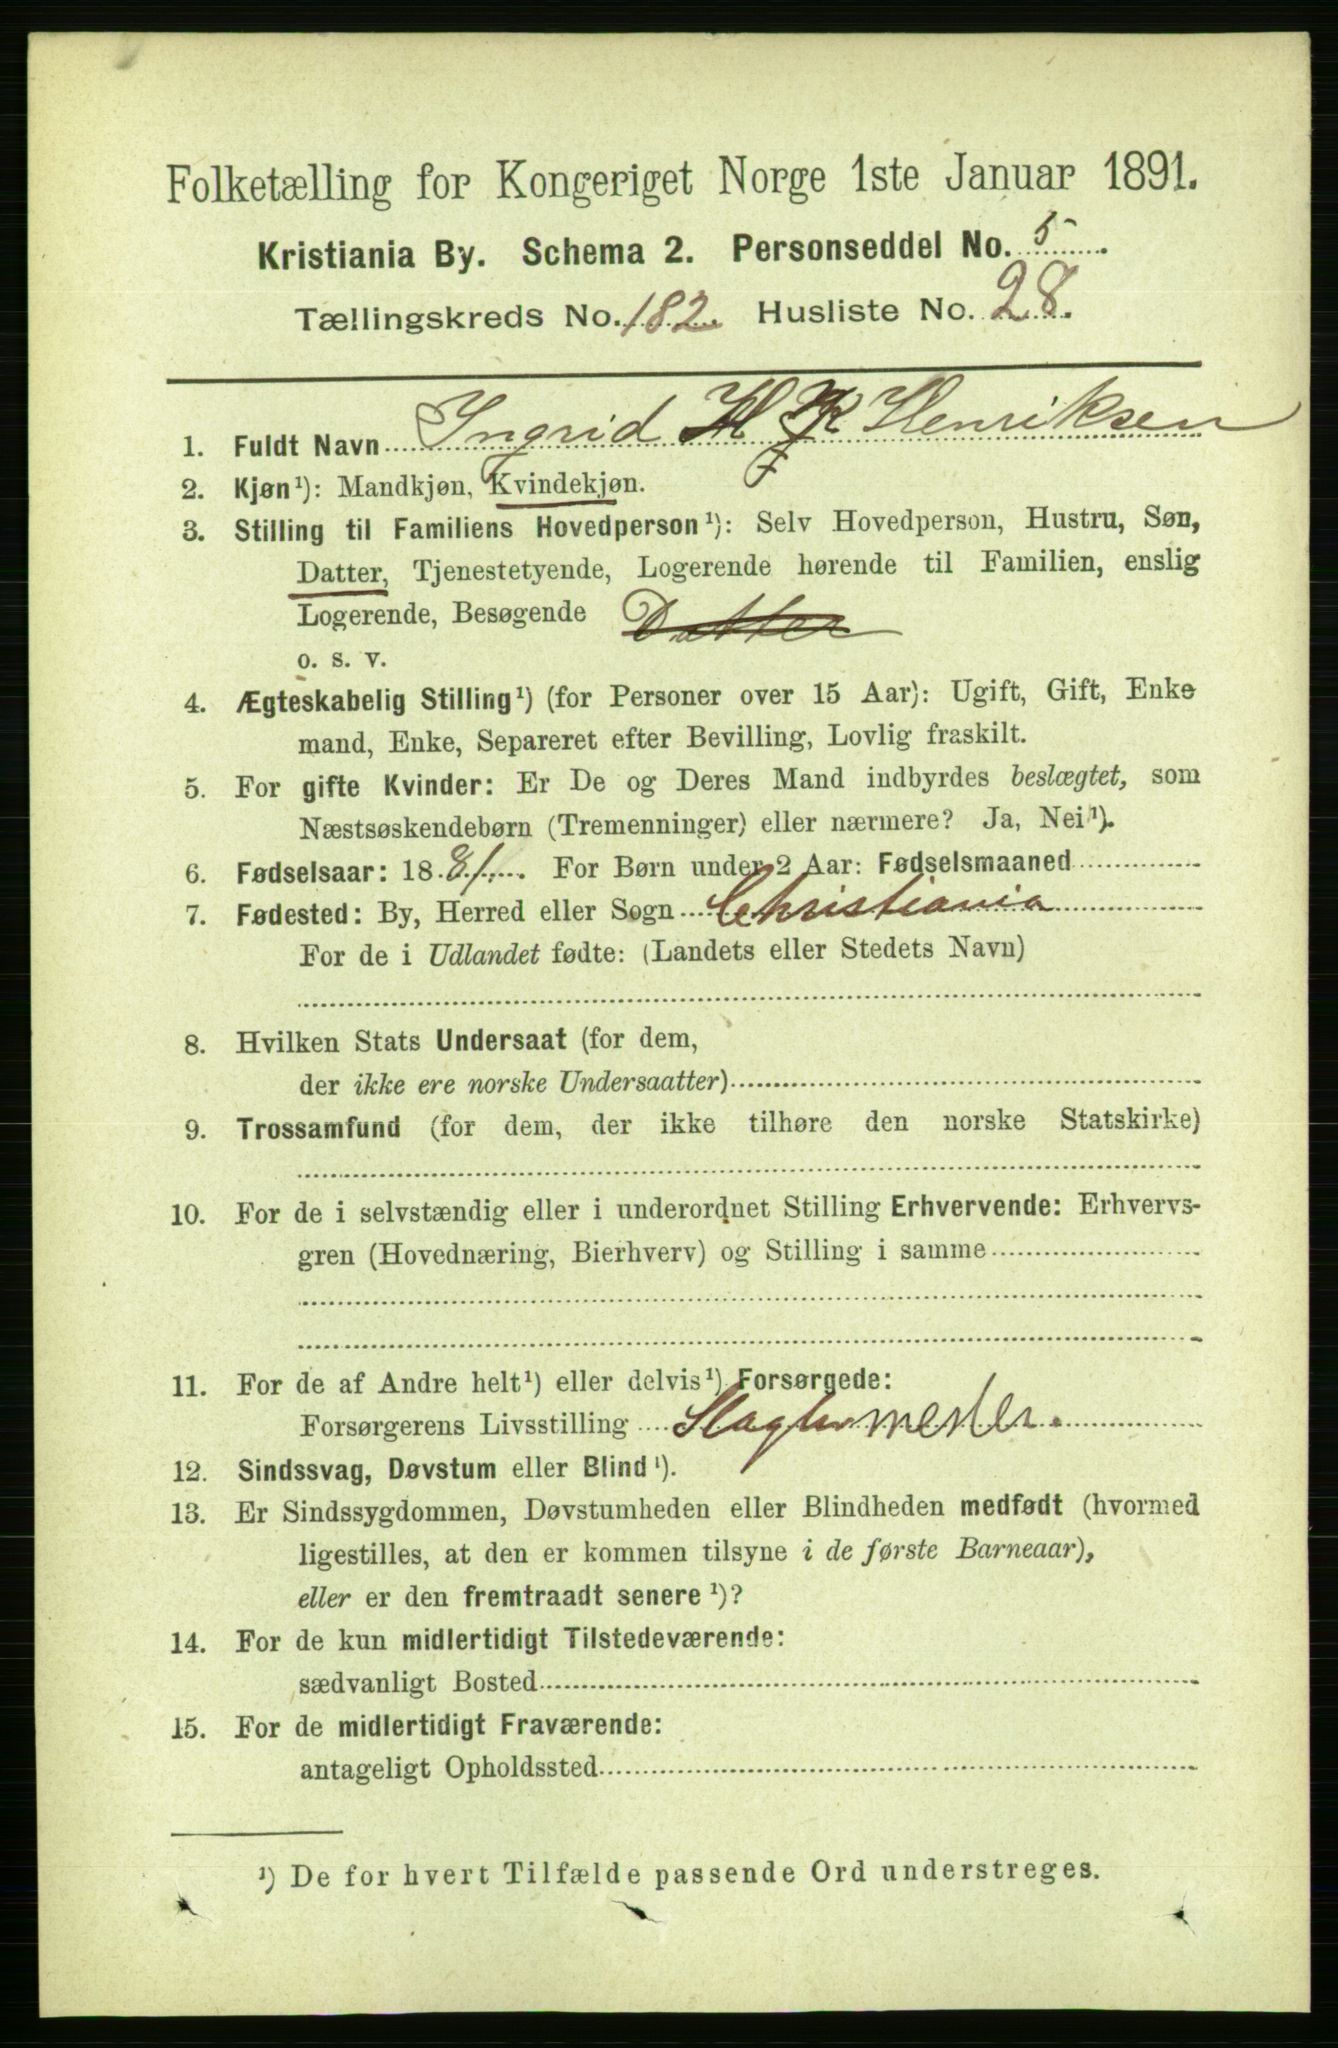 Folketælling for Kongeriget Norge 1ste Januar 1891.
Kristiania By. Schema 2. Personseddel No. 5
Tællingskreds No. 182. Husliste No. 28.
1. Fuldt Navn Ingrid H K Henriksen
2. Kjøn¹): Mandkjøn, Kvindekjøn.
3. Stilling til Familiens Hovedperson¹): Selv Hovedperson, Hustru, Søn,
Datter, Tjenestetyende, Logerende hørende til Familien, enslig
Logerende, Besøgende Datter
o. s. v.
4. Ægteskabelig Stilling¹) (for Personer over 15 Aar): Ugift, Gift, Enke
mand, Enke, Separeret efter Bevilling, Lovlig fraskilt.
5. For gifte Kvinder: Er De og Deres Mand indbyrdes beslægtet, som
Næstsøskendebørn (Tremenninger) eller nærmere? Ja, Nei¹).
6. Fødselsaar: 1881. For Børn under 2 Aar: Fødselsmaaned
7. Fødested: By, Herred eller Sogn Christiania
For de i Udlandet fødte: (Landets eller Stedets Navn)
8. Hvilken Stats Undersaat (for dem,
der ikke ere norske Undersaatter)
9. Trossamfund (for dem, der ikke tilhøre den norske Statskirke)
10. For de i selvstændig eller i underordnet Stilling Erhvervende: Erhvervs-
gren (Hovednæring, Bierhverv) og Stilling i samme
11. For de af Andre helt¹) eller delvis¹) Forsørgede:
Forsørgerens Livsstilling Slagtermester.
12. Sindssvag, Døvstum eller Blind¹).
13. Er Sindssygdommen, Døvstumheden eller Blindheden medfødt (hvormed
ligestilles, at den er kommen tilsyne i de første Barneaar),
eller er den fremtraadt senere¹)?
14. For de kun midlertidigt Tilstedeværende:
sædvanligt Bosted
15. For de midlertidigt Fraværende:
antageligt Opholdssted
¹) De for hvert Tilfælde passende Ord understreges.